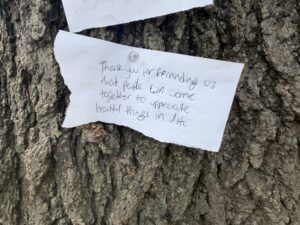 Thank you for reminding us
that people can come
together to appreciate
beautiful things in life